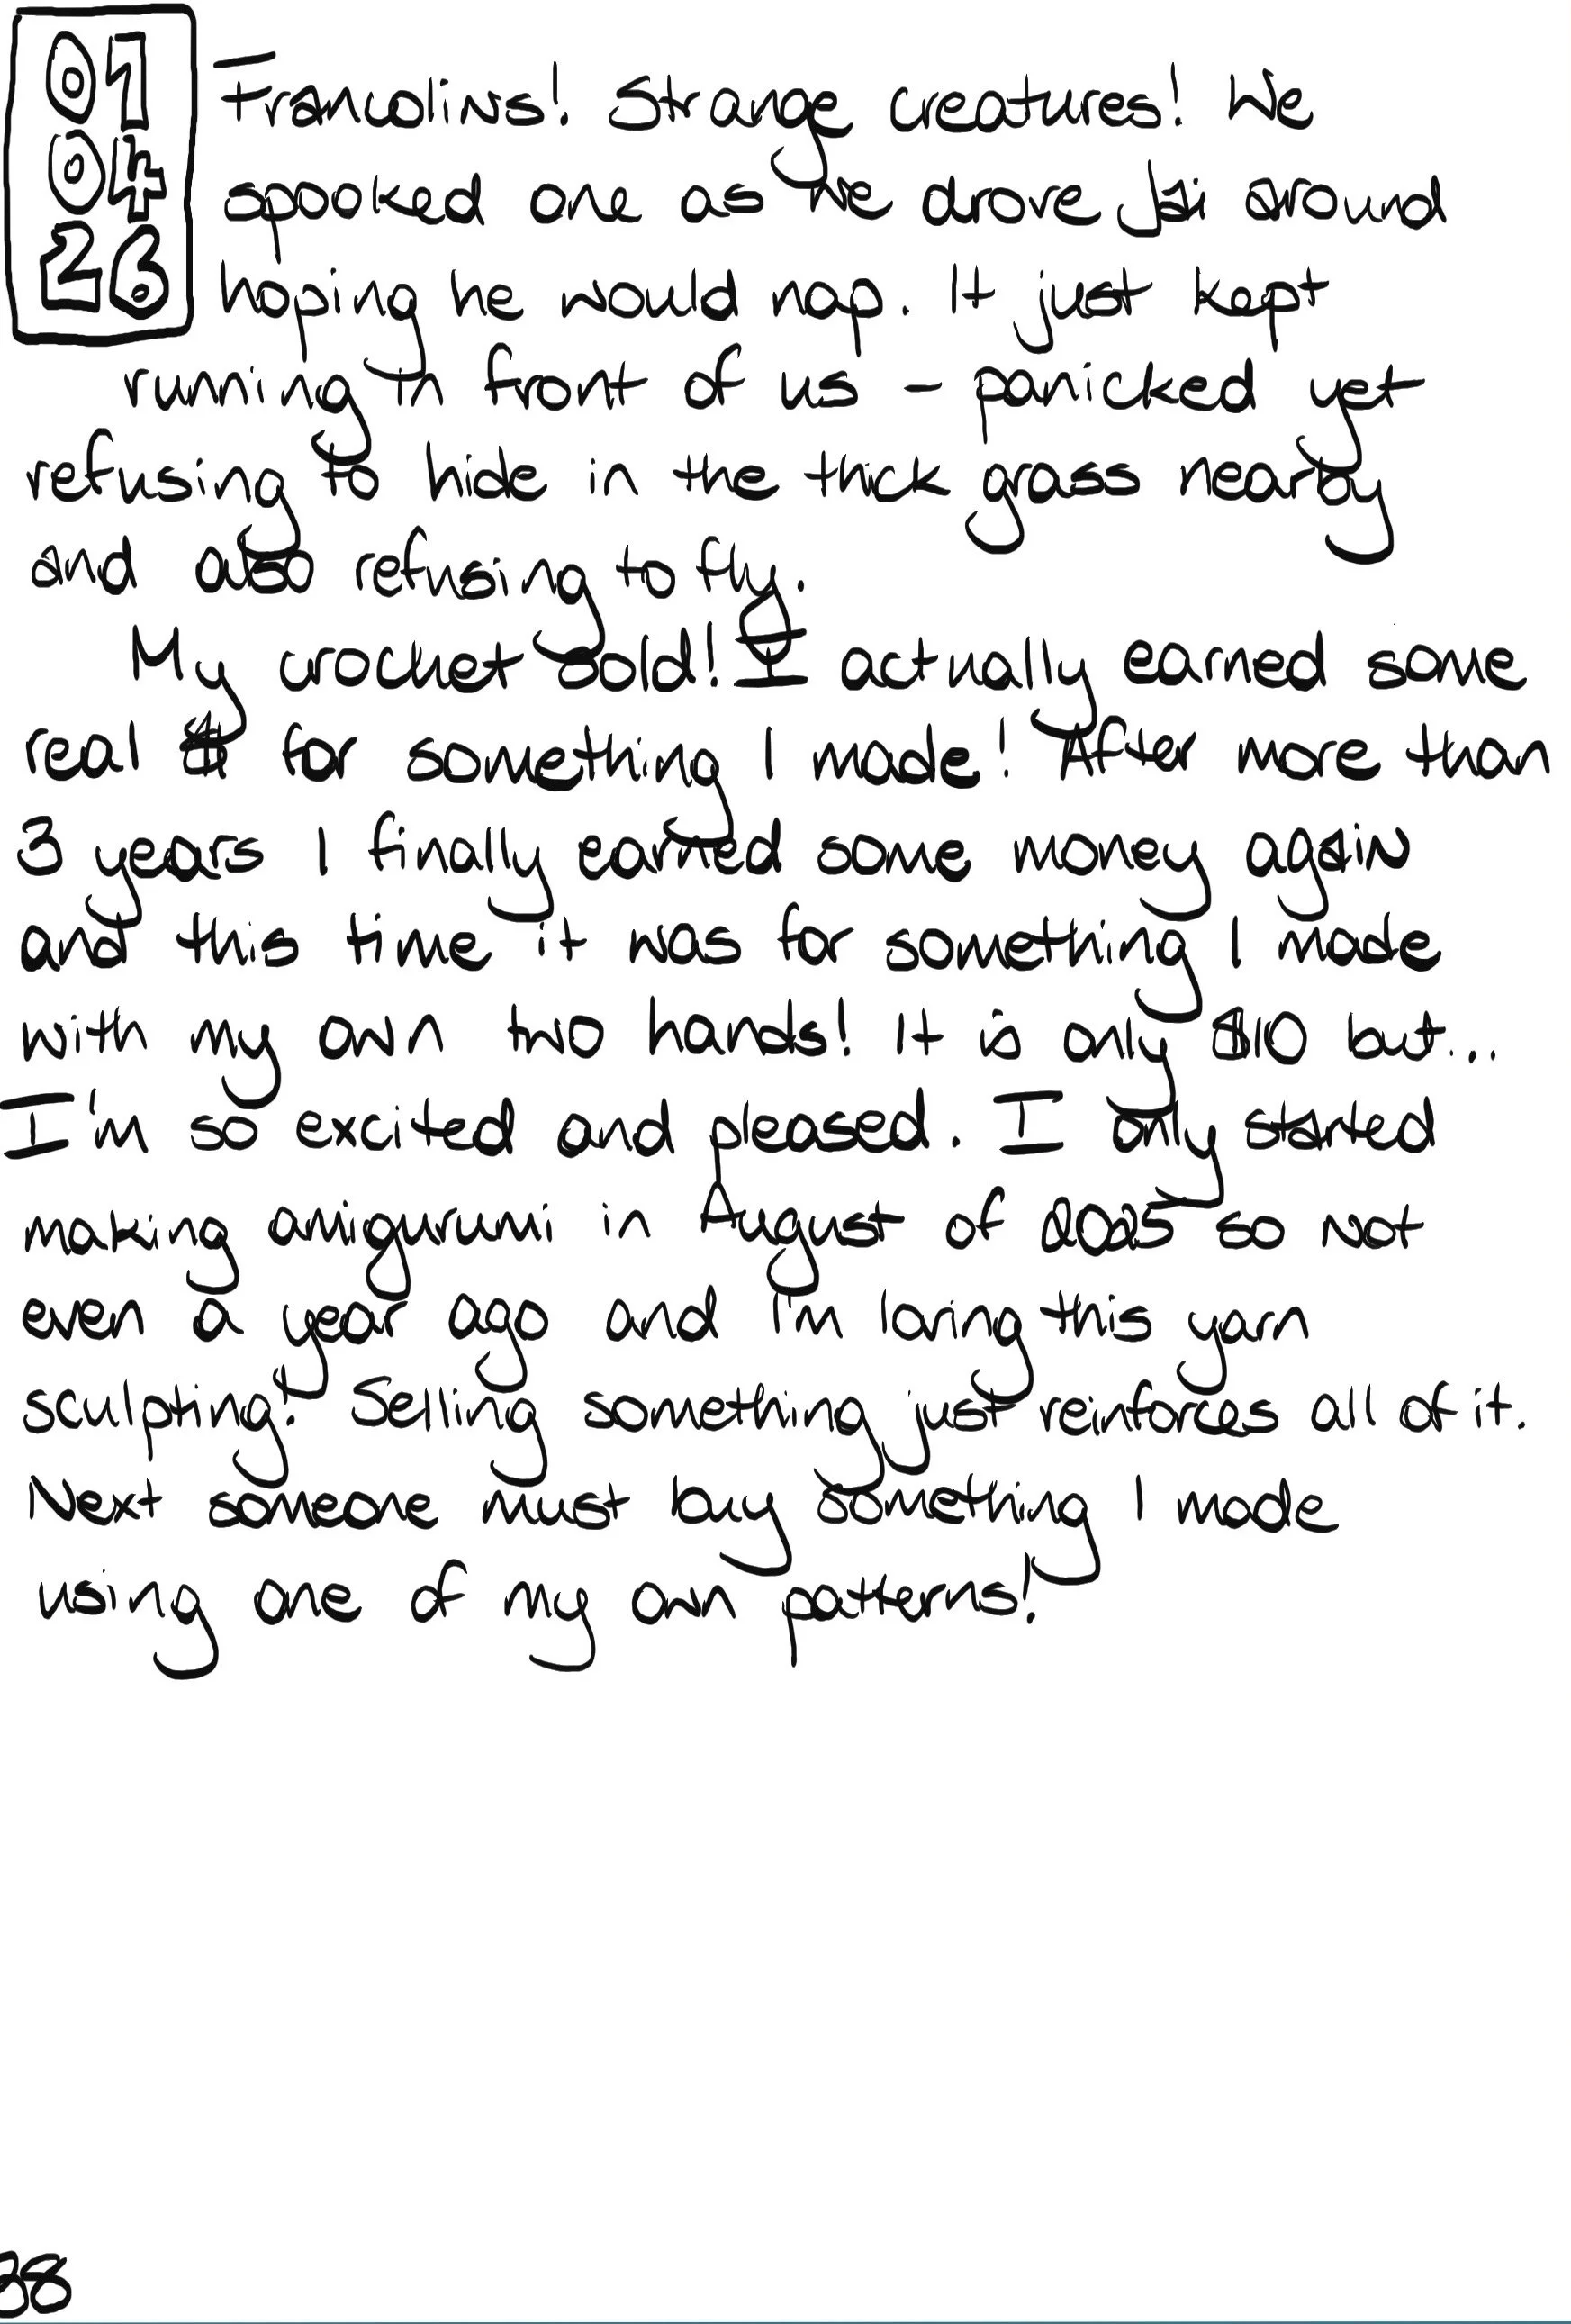 01
04
26
Francolins! Strange creatures! We
spooked one as we drove Jai around
hoping he would nap. It just kept
running in front of us - panicked yet
refusing to hide in the thick grass nearby
and also refusing to fly.
My crochet sold! I actually earned some
real $ for something I made! After more than
3 years I finally earned some money again
and this time it was for something I made
with my own two hands! It is only $10 but...
I'm so excited and pleased. I only started
making amigurumi in August of 2025 so not
even a year ago and I'm loving this yarn
sculpting! Selling something just reinforces all of it.
Next someone must buy something I made
using one of my own patterns!
38